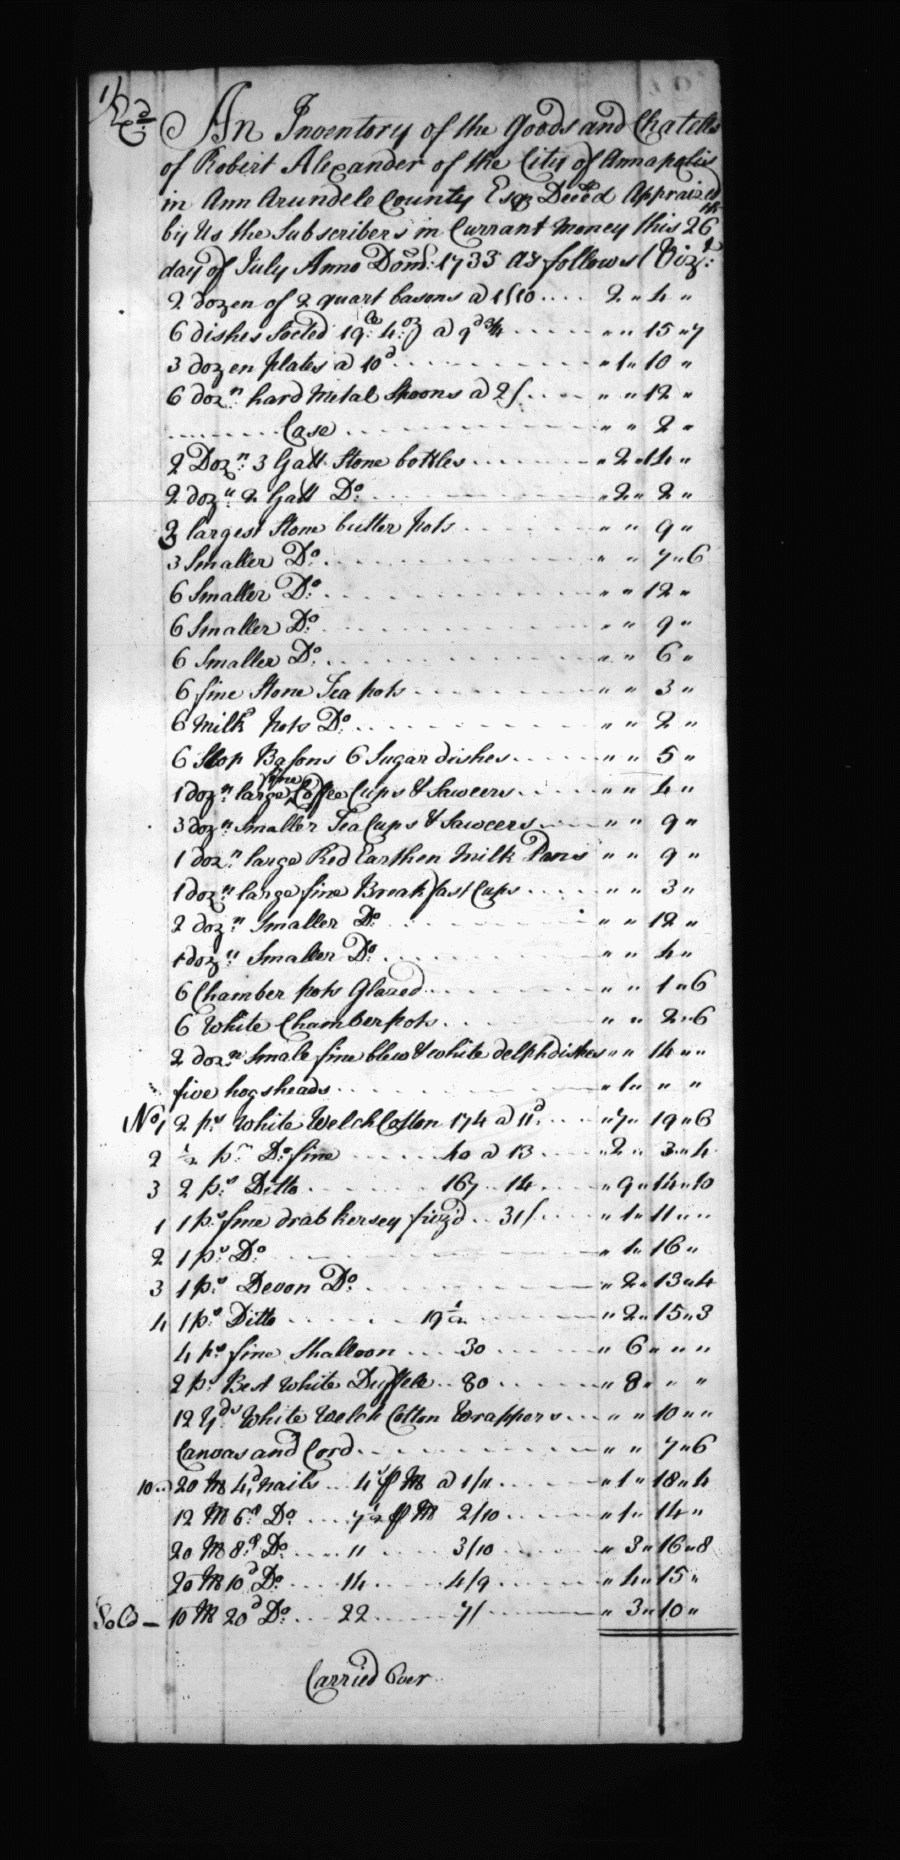 An Inventory of the Goods and Chatells
of Robert Alexander of the City of Annapolis
in Ann Arundele County Esqr Deced Appraized
by Us the Subscribers in Currant Money this 26th
day of July Anno Dom: 1733 as follows (Vizt:
2 dozen of 2 quart basons a 1/10 .... 2 " 4 "
6 dishes Soeted 19lb: 4oz a 9d 3/4 ..... " " 15 " 7
3 dozen plates a 10d ..... " 1 " 10 "
6 dozn hard Metal Spoons a 2/ .... " " 12 "
........ Case ........ " " 2 "
2 Dozn: 3 Gall Stone bottles ...... " 2 " 14 "
2 dozn: 2 Gall Do: ...... " 2 " 2 "
3 largest Stone butter pots ..... " " 9 "
3 Smaller Do: ...... " " 7 " 6
6 Smaller Do: ...... " " 12 "
6 Smaller Do: ...... " " 9 "
6 Smaller Do: ...... " " 6 "
6 fine Stone Tea pots ...... " " 3 "
6 Milk pots Do: ...... " " 2 "
6 Slop Basons 6 Sugar dishes ..... " " 5 "
1 dozn: large fine Coffee Cups & Sawcers ..... " " 4 "
3 dozn: Smaller Tea Cups & Sawcers .... " " 9 "
1 dozn: large Red Earthen Milk Pans " " 9 "
1 dozn: large fine Breakfast Cups .... " " 3 "
2 dozn: Smaller Do ..... " " 12 "
1 dozn: Smaller Do: ..... " " 4 "
6 Chamber pots Glazed ..... " " 1 " 6
6 White Chamber pots ..... " " 2 " 6
2 dozn: Smale fine blew & white delph dishes " " 14 " "
five hogsheads ..... " 1 " " "
No 1 2 ps White Welch Cotton 174 a 11d .... " 7 " 19 " 6
2 1/2 ps Do: fine ..... 40 a 13 .... " 2 " 3 " 4
3 2 ps Ditto ..... 167 .. 14 .... " 9 " 14 " 10
1 1 ps fine drab kersey .. 31/ .... " 1 " 11 " "
2 1 ps Do ..... " 1 " 16 "
3 1 ps Devon Do: ..... " 2 " 13 " 4
4 1 ps Ditto ..... 19 1/2 ..... " 2 " 15 " 3
4 ps fine Shalloon .... 30 .... " 6 " " "
2 ps Best White Duffele .. 80 .... " 8 " " "
12 Yds White Welch Cotton Wrappers ... " " 10 " "
Canvas and Cord ..... " " 7 " 6
10.. 20 M 4d nails .. 4 1/2 M a 1/11 .... " 1 " 18 " 4
12 M 6d Do .... 7 1/2 M 2/10 .... " 1 " 14 "
20 M 8d Do .... 11 3/10 .... " 3 " 16 " 8
20 M 10d Do .... 14 4/9 .... " 4 " 15 "
Sold - 10 M 20d Do: ... 22 ... 7/ .... " 3 " 10 "
Carried Over